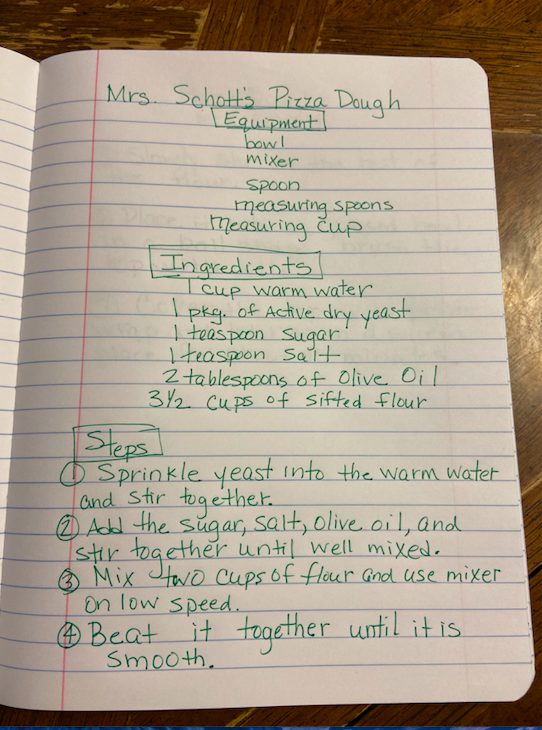 Mrs. Schott's Pizza Dough
Equipment
bowl
mixer
spoon
measuring spoons
measuring cup
Ingredients
1 cup warm water
1 pkg. of Active dry yeast
1 teaspoon sugar
1 teaspoon salt
2 tablespoons of Olive Oil
3 1/2 cups of sifted flour
Steps
① Sprinkle yeast into the warm water
and stir together.
② Add the sugar, salt, olive oil, and
stir together until well mixed.
③ Mix two cups of flour and use mixer
on low speed.
④ Beat it together until it is
smooth.